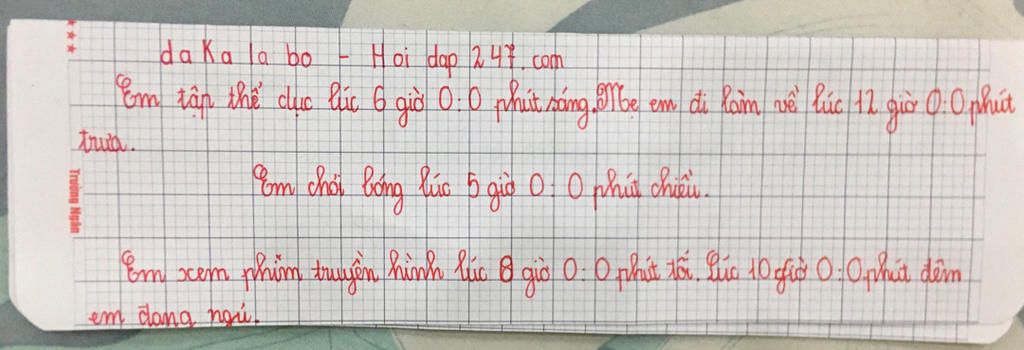 da Ka la bo - Hoi dap 247.com
Em tập thể dục lúc 6 giờ 0:0 phút sáng. Mẹ em đi làm về lúc 12 giờ 0:0 phút
trưa.
Em chơi bóng lúc 5 giờ 0:0 phút chiều.
Em xem phim truyền hình lúc 8 giờ 0:0 phút tối. Lúc 10 giờ 0:0 phút đêm
em đang ngủ.
★★★
Trường Ngân